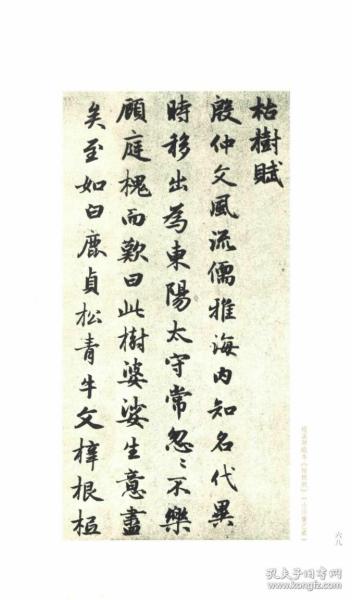 枯樹賦
殷仲文風流儒雅海内知名代異
時移出為東陽太守常忽〻不樂
顧庭槐而歎曰此樹婆娑生意盡
矣至如白鹿貞松青牛文梓根柢
六八
孔夫子旧书网
www.kongfz.com